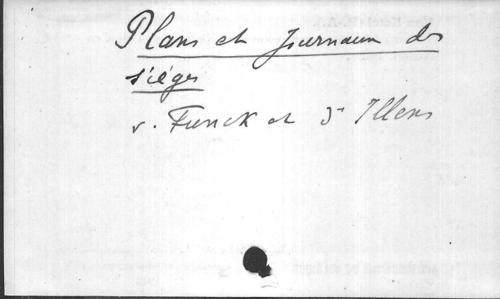 Plans et Journaux des
siéges
v. Funck et d'Illens